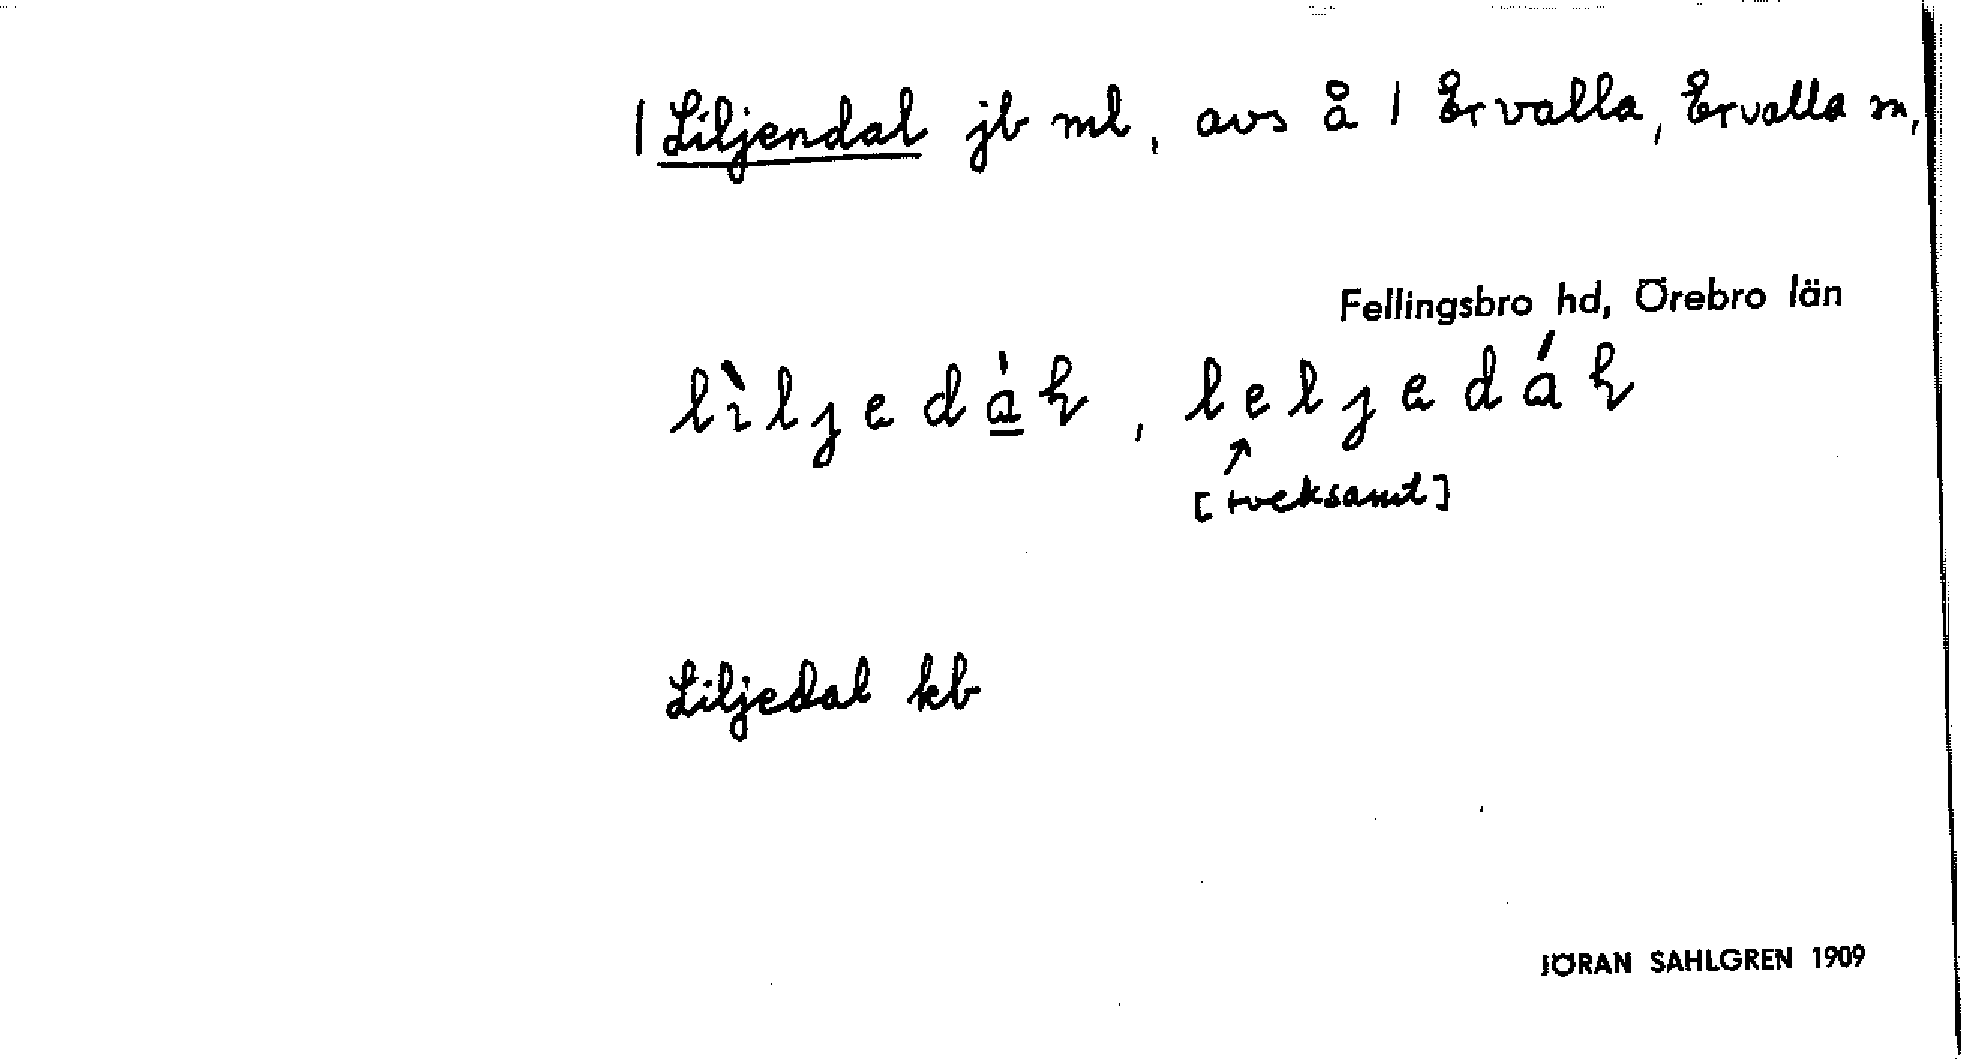 1 Liljendal jb ml, avs å 1 Ervalla, Ervalla sn,
Fellingsbro hd, Örebro län
lìljedàɫ, leljedáɫ
↗
[tveksamt]
Liljedal kb
JÖRAN SAHLGREN 1909